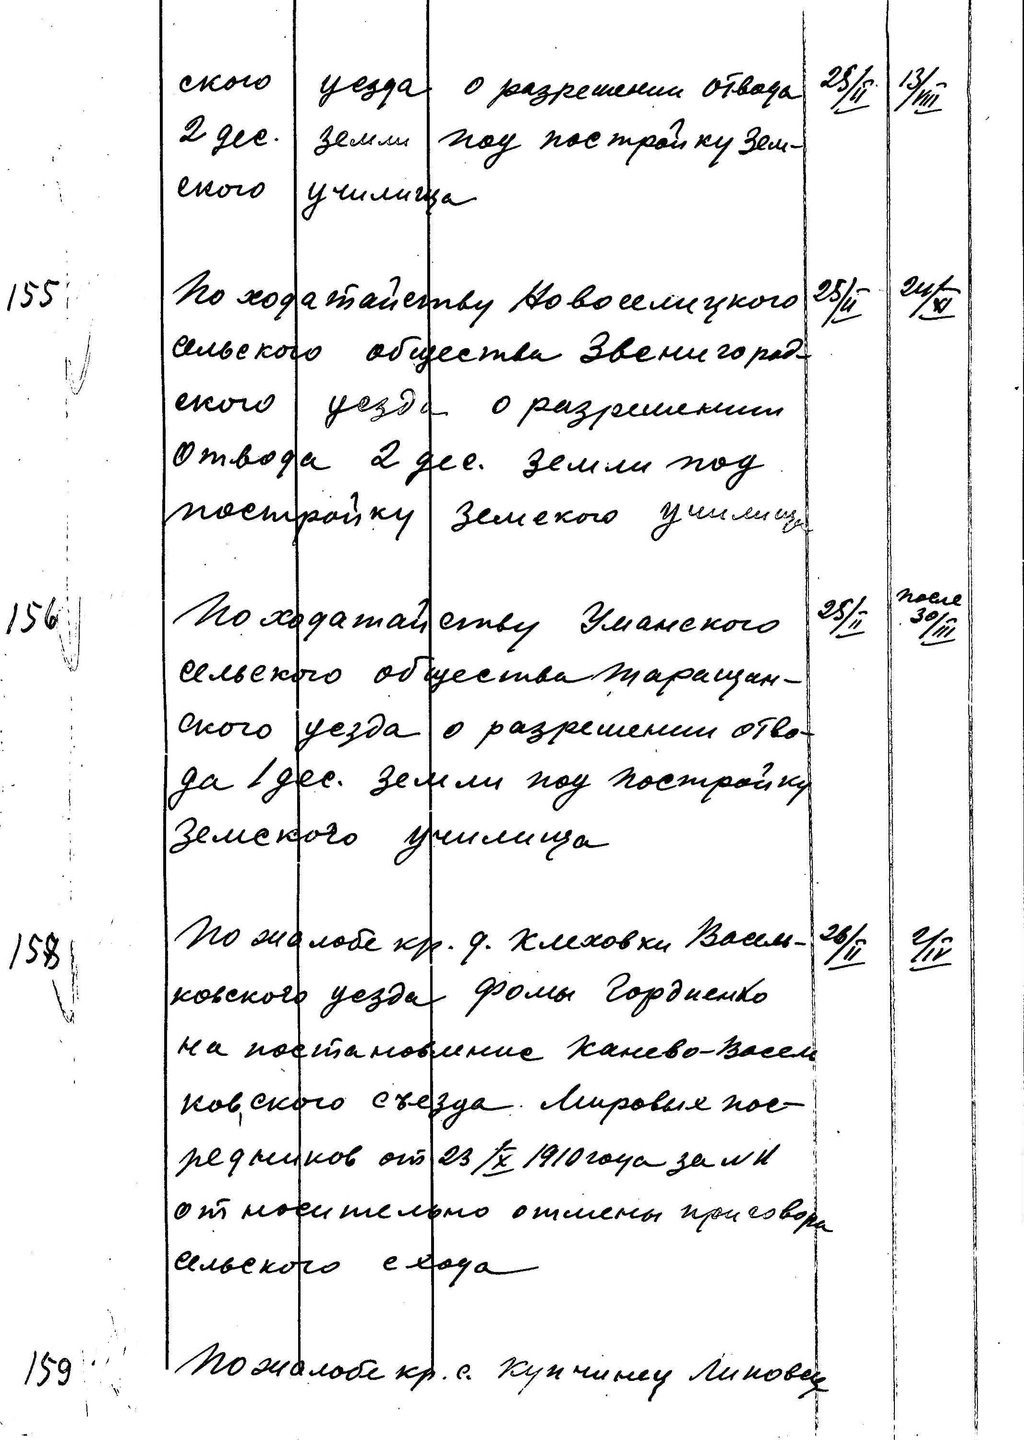 ского уезда о разрешении отвода 25/II 13/VIII
2 дес. земли под постройку Зем-
ского училища
155 По ходатайству Новоселицкого 25/II 24/XI
сельского общества Звенигород-
ского уезда о разрешении
отвода 2 дес. земли под
постройку земского училища
156 По ходатайству Уманского 25/II после 30/III
сельского общества Таращан-
ского уезда о разрешении отво-
да 1 дес. земли под постройку
Земского училища
158 По жалобе кр. д. Хлеховки Василь- 26/II 2/IV
ковского уезда Фомы Гордиенко
на постановление Канево-Василь
ковского съезда Мировых пос-
редников от 23/X 1910 года за
относительно отмены приговора
сельского схода
159 По жалобе кр. с. Купчинец Липовец